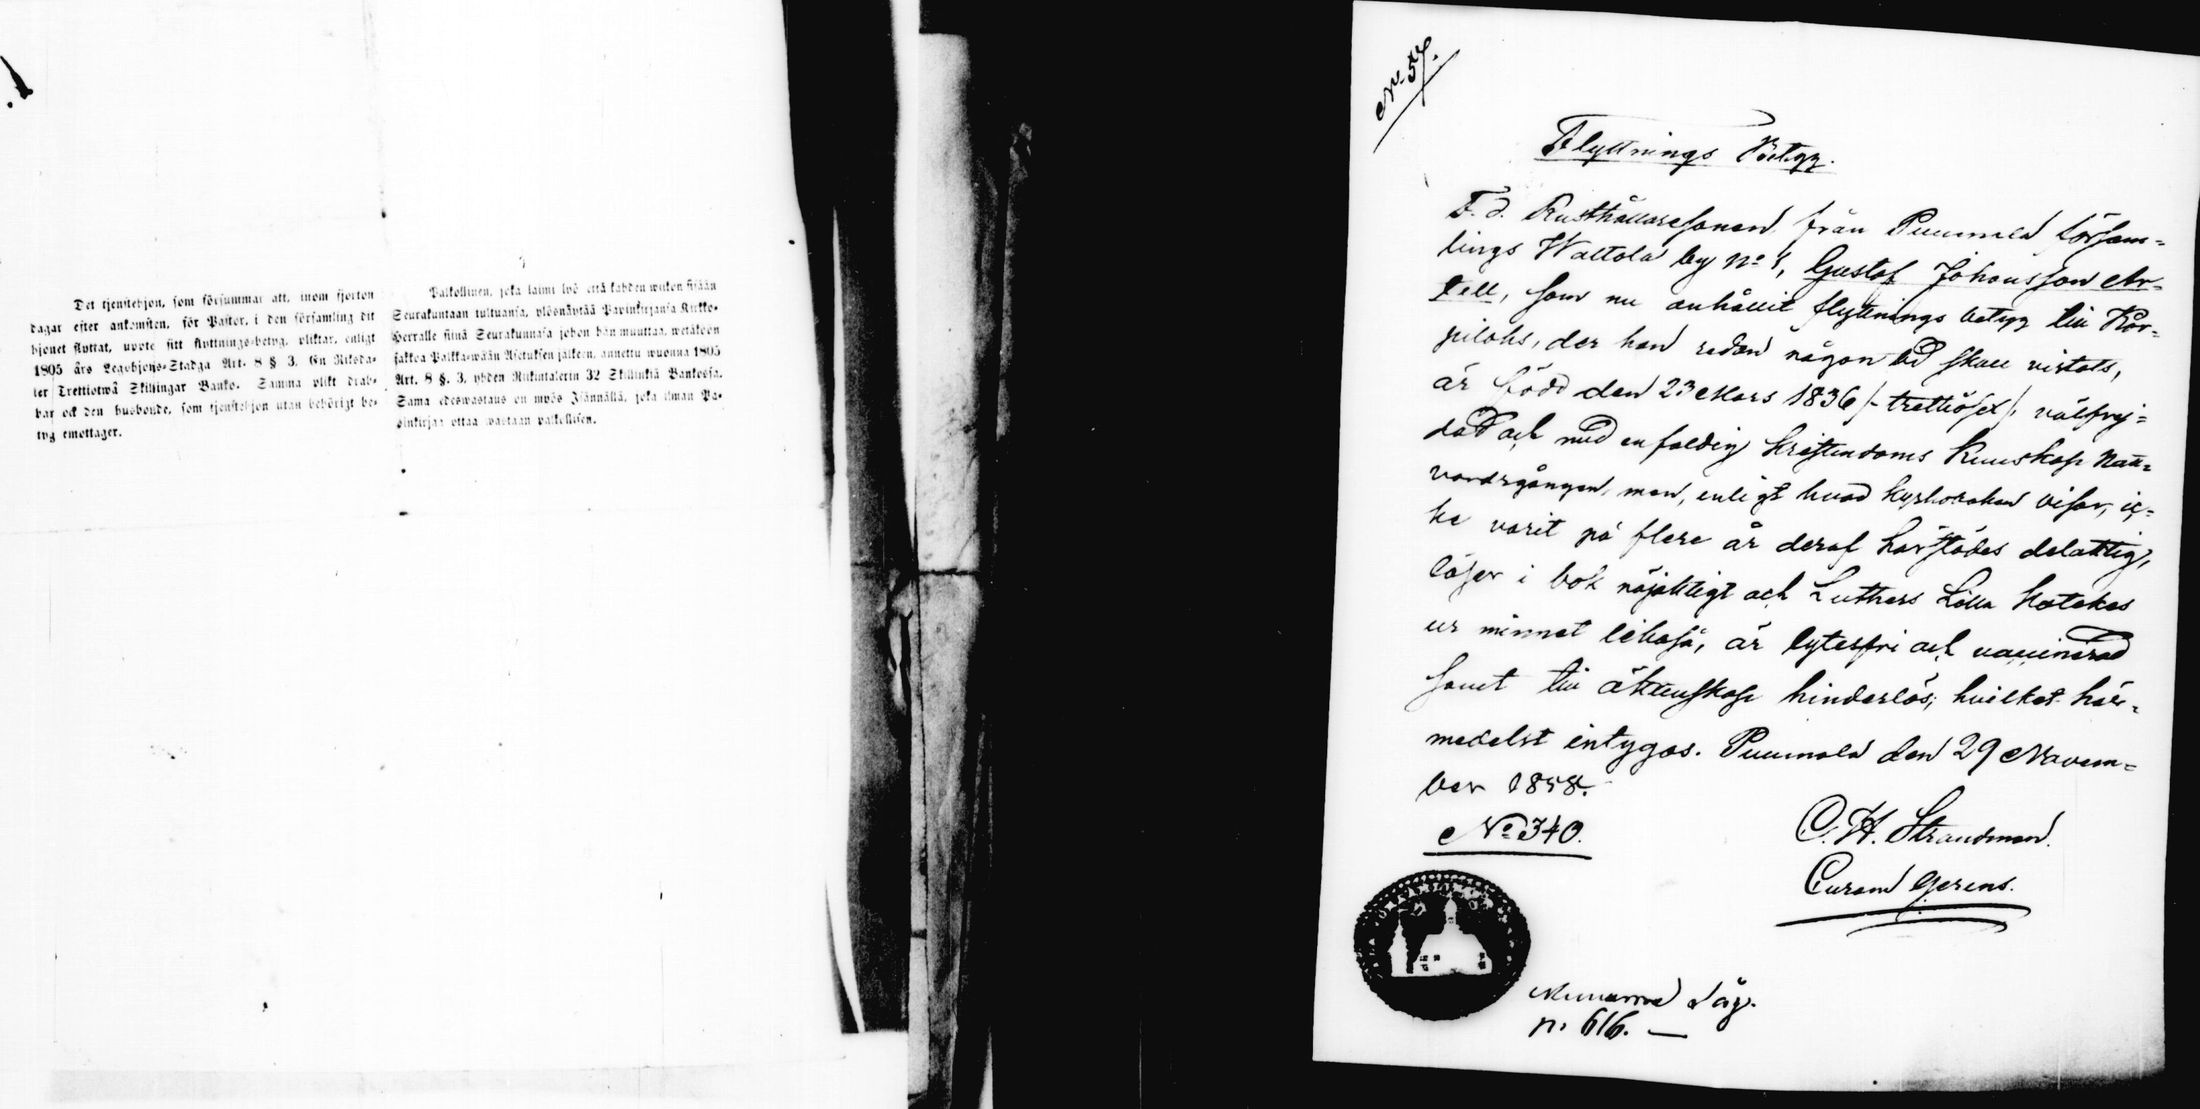 Det tjenstehjon, som försummar att, inom fjorton
dagar efter ankomsten, för Pastor, i den församling dit
hjonet flyttat, uppte sitt flyttnings-betyg, pliktar, enligt
1805 års Legohjons-Stadga Art. 8 § 3, En Riksda-
ler Trettiotwå Skillingar Banko. Samma plikt drab-
bar ock den husbonde, som tjenstehjon utan behörigt be-
tyg emottager.
Palkollinen, joka laimi lyö että kahden wiikon sisään
Seurakuntaan tultuansa, ylösnäyttää Papinkirjansa Kirkko-
Herralle siinä Seurakunnasa johon hän muuttaa, wetäköön
sakkoa Palkka-wään Asetuksen jälkeen, annettu wuonna 1805
Art. 8 §. 3, yhden Riikintalerin 32 Skillinkiä Bankossa.
Sama edeswastaus on myös Isännällä, joka ilman Pa-
pinkirjaa ottaa wastaan palkollisen.
No. 57.
Flyttnings Betyg.
F. d. Rusthållaresonen från Puumala Församl=
lings Wattola by No 1, Gustaf Johansson Ar=
tell, som nu anhållit flyttnings betyg till Kor=
pilaks, der han redan någon tid skall vistats,
är född den 23 Mars 1836 /-trettiosex/, välfrej=
dad och med enfaldig kristendoms kunskap Natt=
vardsgången, men, enligt hvad kyrkoboken visar, ic=
ke varit på flere år deraf härstädes delaktig,
läser i bok nöjaktigt och Luthers Lilla Katekes
ur minnet likaså, är lytesfri och vaccinerad
samt till äktenskap hinderlös; hvilket här=
medelst intygas. Puumala den 29 Novem=
ber 1858.
No 340.
C. H. Strandman.
Curam gerens.
n. 616.